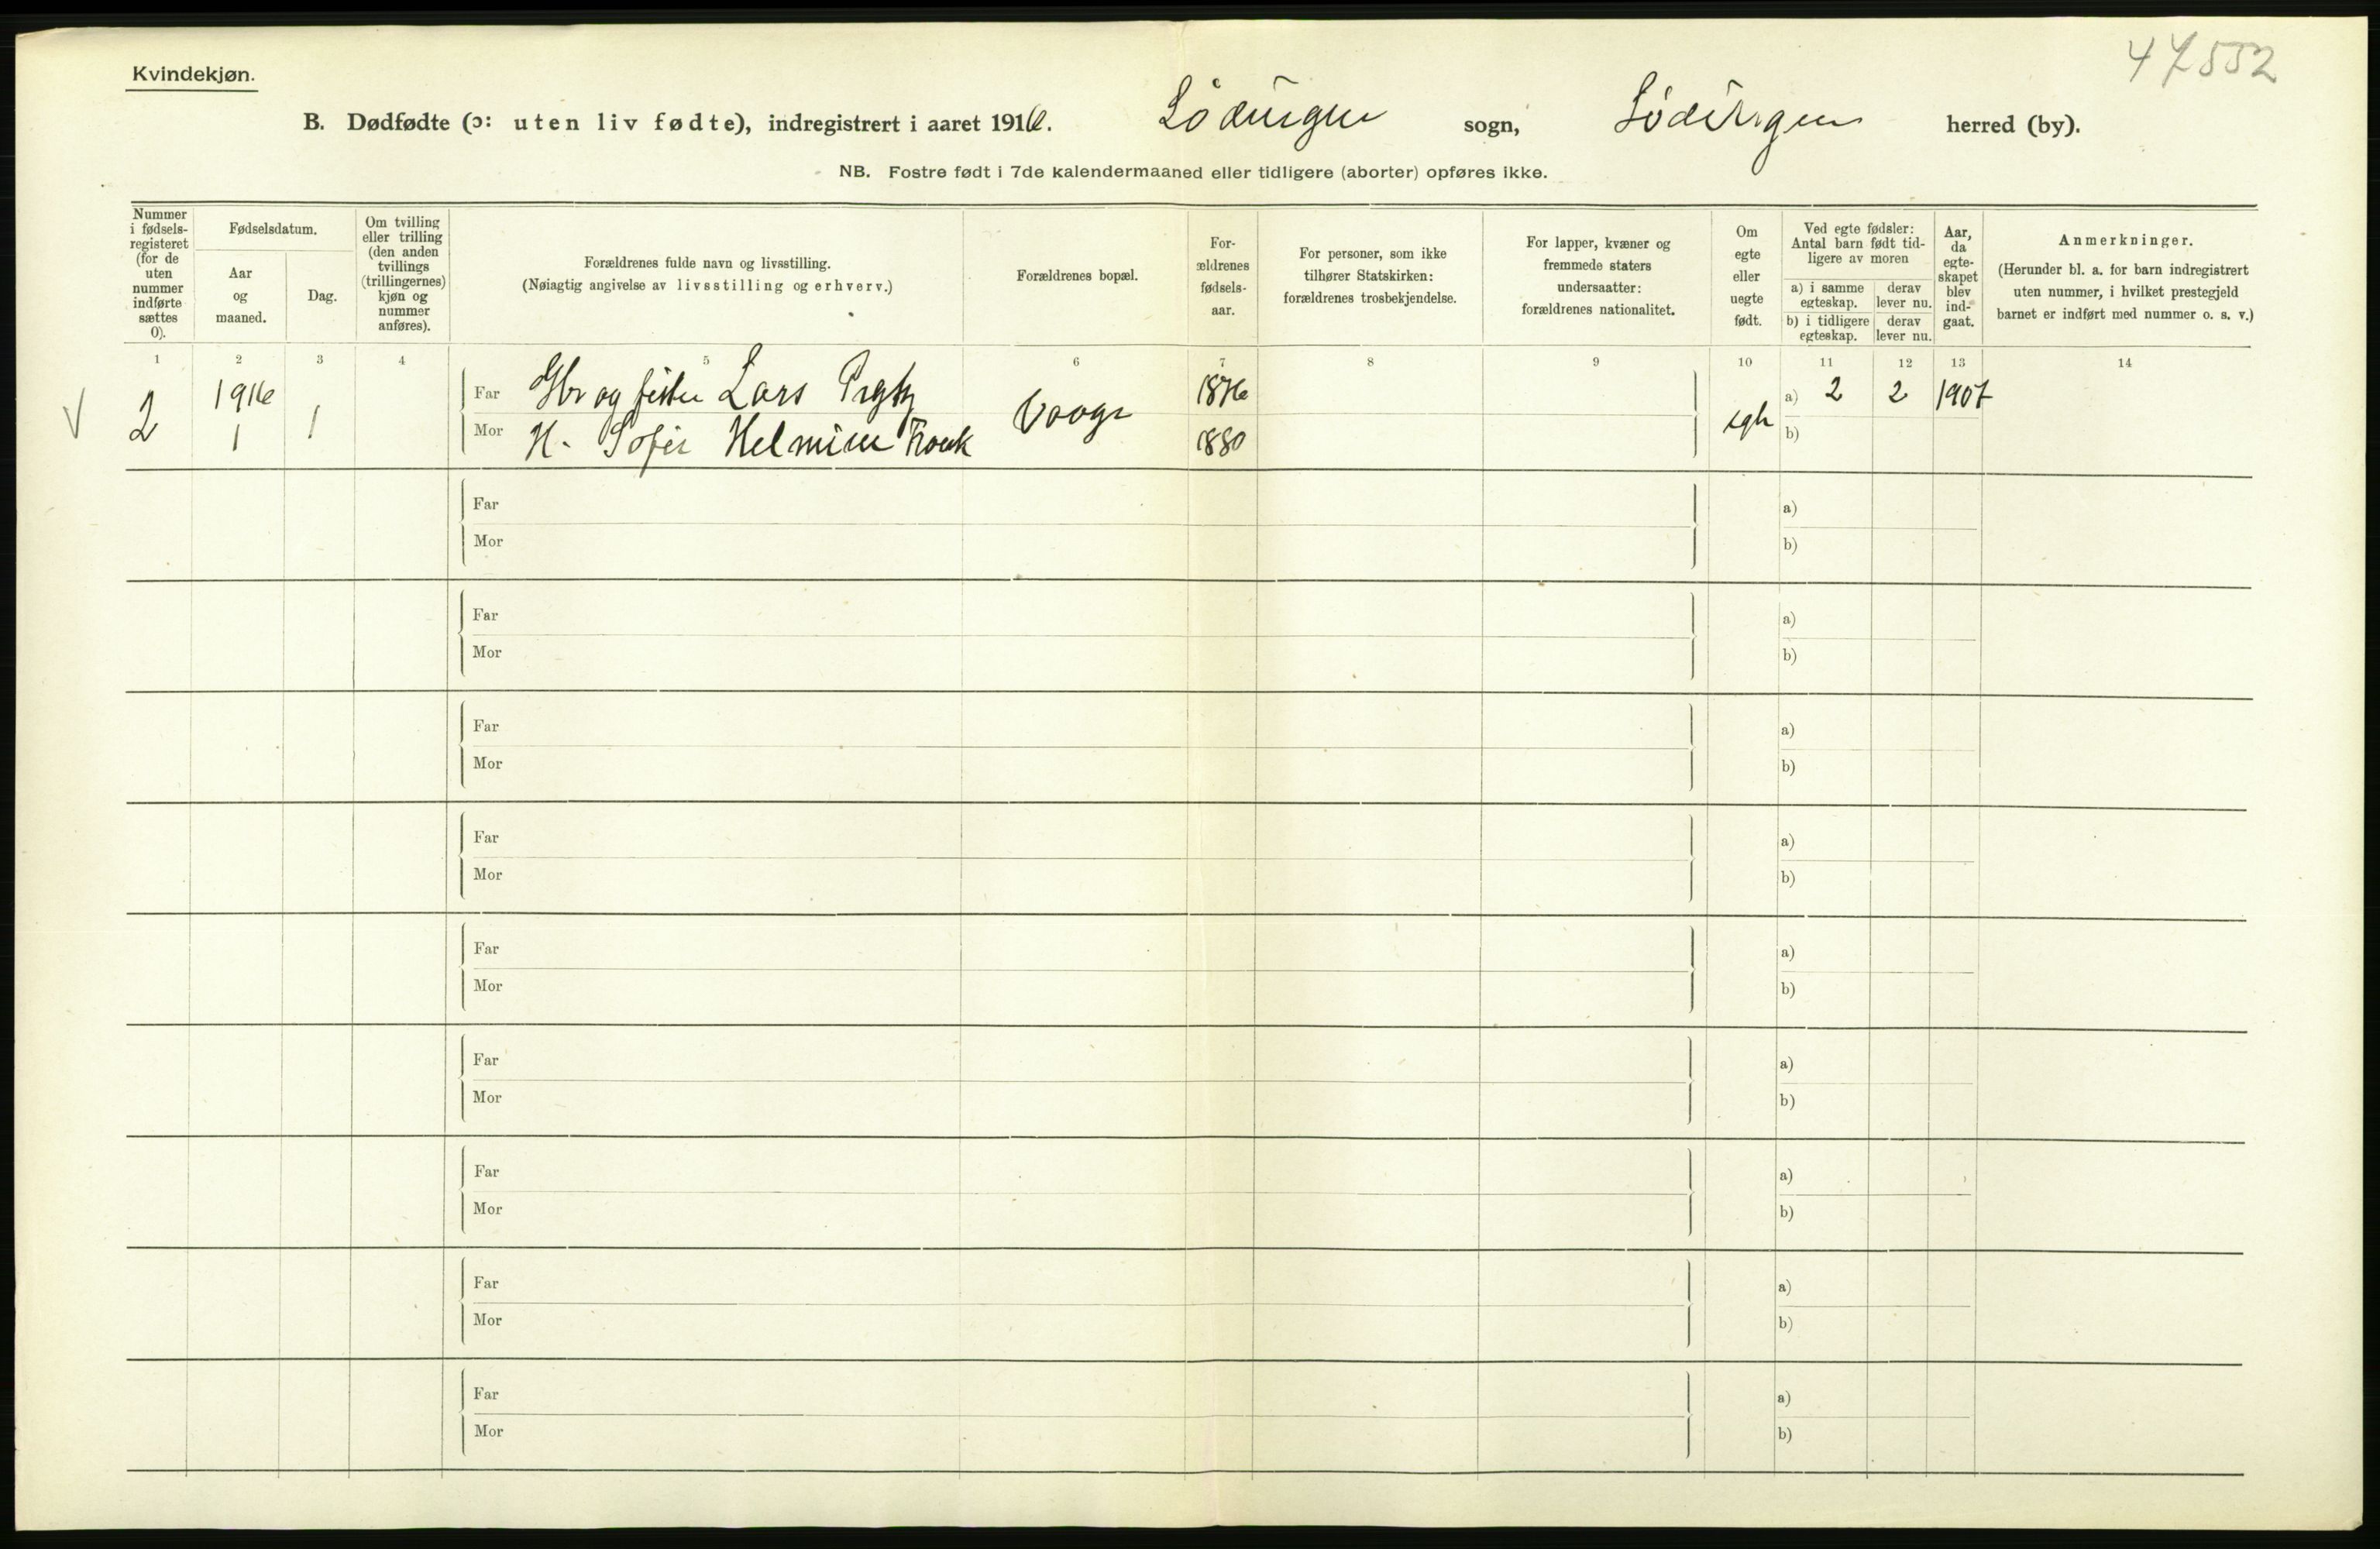 47552
Kvindekjøn.
B. Dødfødte (ɔ: uten liv fødte), indregistrert i aaret 1916. Lödingen sogn, Lödingen herred (by).
NB. Fostre født i 7de kalendermaaned eller tidligere (aborter) opføres ikke.
Nummer i fødsels-registeret (for de uten nummer indførte sættes 0).
Fødselsdatum.
Aar og maaned.
Dag.
Om tvilling eller trilling (den anden tvillings (trillingernes) kjøn og nummer anføres).
Forældrenes fulde navn og livsstilling.
(Nøiagtig angivelse av livsstilling og erhverv.)
Forældrenes bopæl.
For-ældrenes fødsels-aar.
For personer, som ikke tilhører Statskirken: forældrenes trosbekjendelse.
For lapper, kvæner og fremmede staters undersaatter: forældrenes nationalitet.
Om egte eller uegte født.
Ved egte fødsler: Antal barn født tid-ligere av moren
a) i samme egteskap.
derav lever nu.
b) i tidligere egteskap.
derav lever nu.
Aar, da egte-skapet blev ind-gaat.
Anmerkninger.
(Herunder bl. a. for barn indregistrert uten nummer, i hvilket prestegjeld barnet er indført med nummer o. s. v.)
1 2 3 4 5 6 7 8 9 10 11 12 13 14
V 2 1916 1 1
Far Gbr og fisker Lars 1876 a) 2 2 1907
Mor H. Sofie Helmine 1880 b)
egte
Far a)
Mor b)
Far a)
Mor b)
Far a)
Mor b)
Far a)
Mor b)
Far a)
Mor b)
Far a)
Mor b)
Far a)
Mor b)
Far a)
Mor b)
Far a)
Mor b)